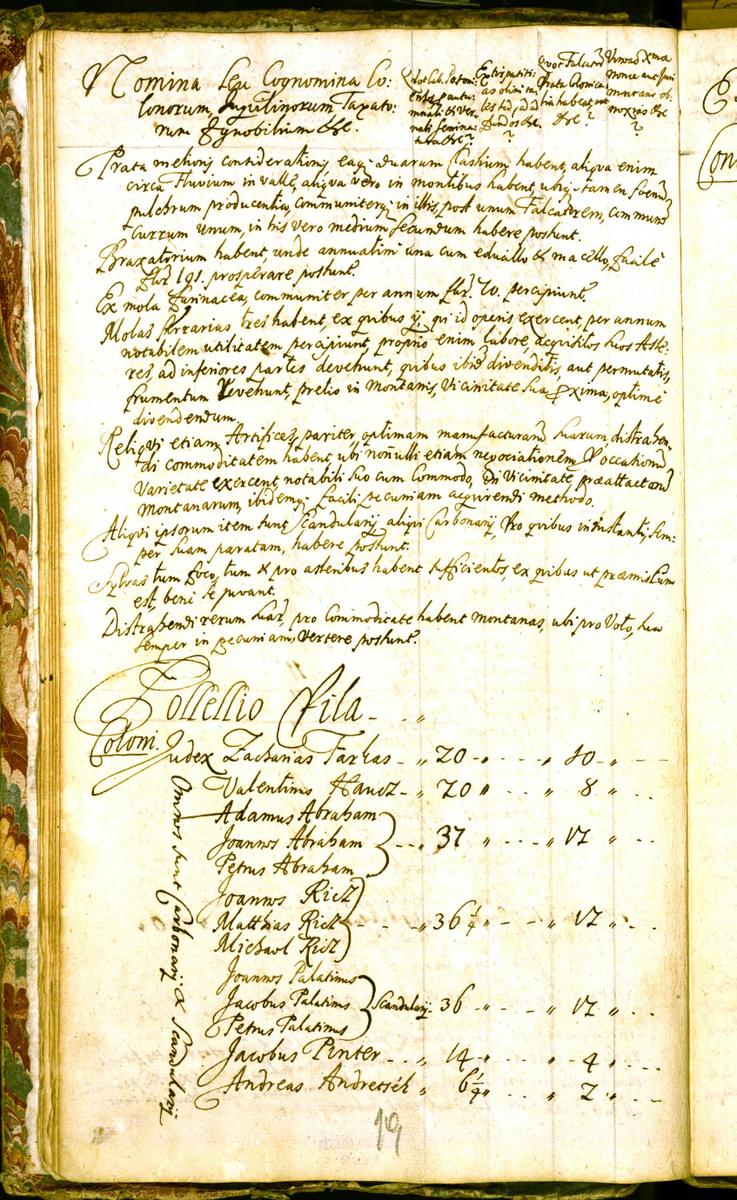 Nomina Seu Cognomina Co-
lonorum, Inquilinorum Taxato-
rum Ignobilium &c.
Quot Cub. Poson:
minali & Ver-
nali semina-
tura &c?
Extirpatiti-
as olim in-
&c.
?
Quot Falcato
Prata
habeant
&c?
&c
?
Prata melioris considerationis eaq. duarum Classium habent, aliqva enim
circa Fluvium in valle, aliqva vero in montibus habent, ubiq. tamen foenu
pulchrum producentia, communiterq. in illis, post unum Falcatorem, commune
Currum unum, in his vero medium secundum habere possunt.
Braxatorium habent, unde annuatim una cum educillo & macello, facile
flor. 191. prosperare possunt.
Ex mola farinacea, communiter per annum flor. 70. percipiunt.
Molas serrarias tres habent, ex quibus ij qui id operis exercent, per annum
notabilem utilitatem percipiunt, proprio enim labore, acqvisitos suos Asse-
res, ad inferiores partes devehunt, quibus ibid. divenditis, aut permutatis,
frumentum revehunt, pretio in Montanis, Vicinitate sua pxima, optime
divendendum.
Reliqvi etiam Artifices, pariter, optimam manufacturaru suarum, distrahen-
di commoditatem habent, ubi nonulli etiam negociationem & occationu
varietate exercent, notabili suo cum Commodo, in Vicinitate, praeattactaru
Montanarum, ibidemq. facili pecuniam acqvirendi methodo.
Aliqvi ipsorum item sunt Scandularij, aliqvi Carbonarij, pro quibus in instanti, sem-
per suam paratam, habere possunt.
Sylvas tum foco, tum & pro asseribus habent sufficientes, ex quibus ut praemissum
est, bene se juvant.
Distrahendi rerum suar, pro Commoditate habent montanas, ubi pro Voto, sua
semper in pecuniam vertere possunt.
Possessio Pila
Coloni. Judex Zacharias Farkas - " 20 " - " 10 "
Valentinus Haucz - " 20 " - " 8 "
Adamus Abraham
Joannes Abraham - " 37 " - " 17 "
Petrus Abraham
Joannes Ricz
Matthias Ricz - " 36 1/4 " - " 17 "
Michael Ricz
Joannes Palatinus
Jacobus Palatinus Scandularij - 36 " - " 17 "
Petrus Palatinus
Jacobus Pinter - " 14 " - " 4 "
Andreas Andresséh " 6 1/4 " - " 2 "
Omnes sunt Carbonarij & Scandularij
19